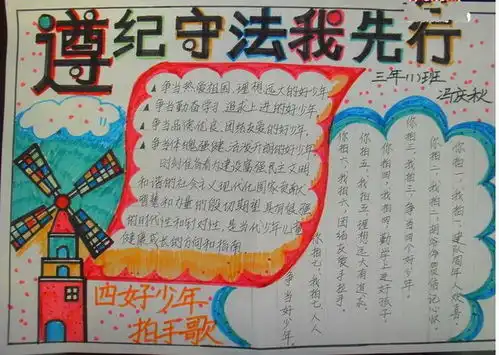 遵纪守法我先行
三年(1)班
冯庆秋
▲争当热爱祖国、理想远大的好少年
▲争当勤奋学习、追求上进的好少年
▲争当品德优良、团结友爱的好少年
▲争当体魄强健、活泼开朗的好少年
和谐的社会主义现代化国家贡献
智慧和力量的殷切期望,具有很强
的时代性和针对性,是当代少年儿童
健康成长的方向和指南
四好少年
拍手歌
你拍一,我拍一,建国周年人欢喜。
你拍二,我拍二,
你拍三,我拍三,争当四个好少年。
你拍四,我拍四,勤学上进好孩子。
你拍五,我拍五,理想远大有追求。
你拍六,我拍六,团结友爱手拉手。
你拍七,我拍七,人人
争当好少年。